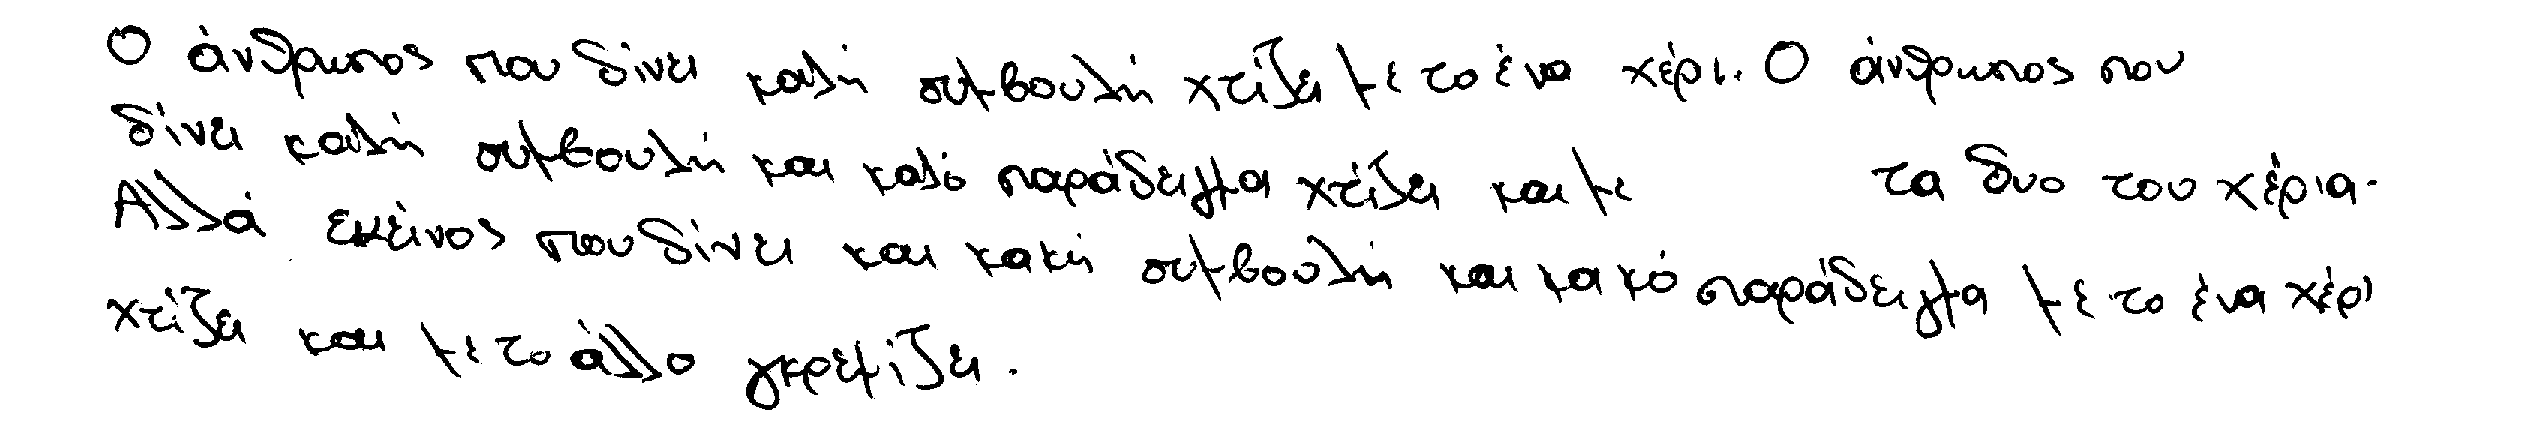 Ο άνθρωπος που δίνει καλή συμβουλή χτίζει με το ένα χέρι. Ο άνθρωπος που
δίνει καλή συμβουλή και καλό παράδειγμα χτίζει και με τα δυο του χέρια.
Αλλά εκείνος που δίνει και κακή συμβουλή και κακό παράδειγμα με το ένα χέρι
χτίζει και με το άλλο γκρεμίζει.